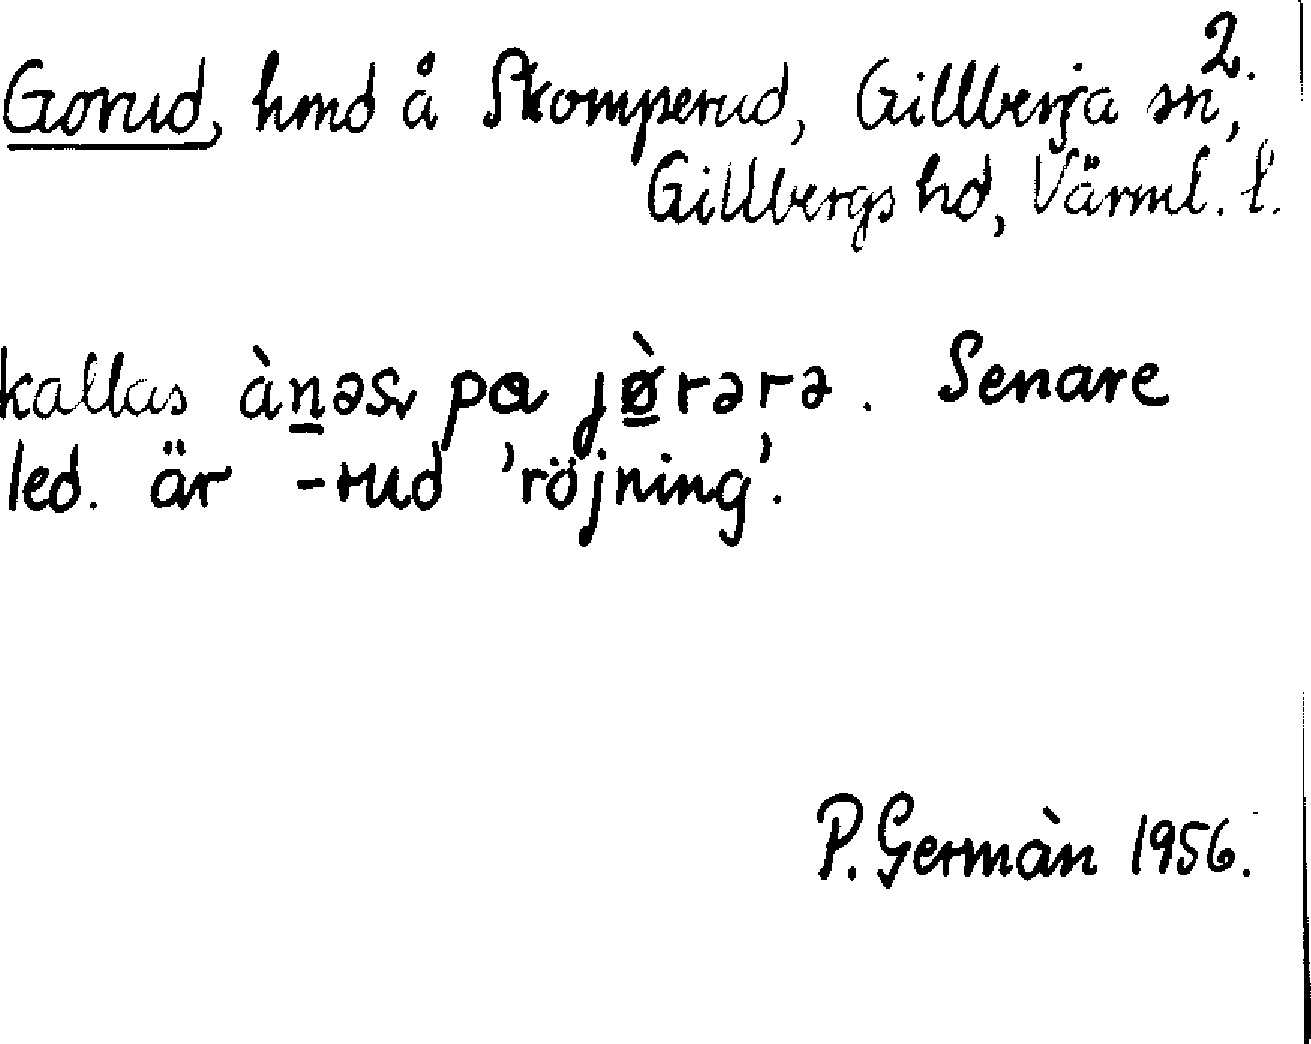 2.
Gorud, hmd å Skomperud, Gillberga sn,
Gillbergs hd, Värml. l.
kallas ànəs pa jø̀rərə. Senare
led. är -rud 'röjning'.
P. Germàn 1956.